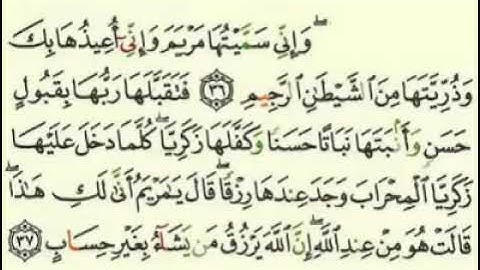 ۖ وَإِنِّي سَمَّيْتُهَا مَرْيَمَ وَإِنِّيٓ أُعِيذُهَا بِكَ
وَذُرِّيَّتَهَا مِنَ ٱلشَّيْطَٰنِ ٱلرَّجِيمِ ٣٦ فَتَقَبَّلَهَا رَبُّهَا بِقَبُولٍ
حَسَنٍ وَأَنۢبَتَهَا نَبَاتًا حَسَنًا وَكَفَّلَهَا زَكَرِيَّا ۖ كُلَّمَا دَخَلَ عَلَيْهَا
زَكَرِيَّا ٱلْمِحْرَابَ وَجَدَ عِندَهَا رِزْقًا ۖ قَالَ يَٰمَرْيَمُ أَنَّىٰ لَكِ هَٰذَا ۖ
قَالَتْ هُوَ مِنْ عِندِ ٱللَّهِ ۖ إِنَّ ٱللَّهَ يَرْزُقُ مَن يَشَآءُ بِغَيْرِ حِسَابٍ ٣٧